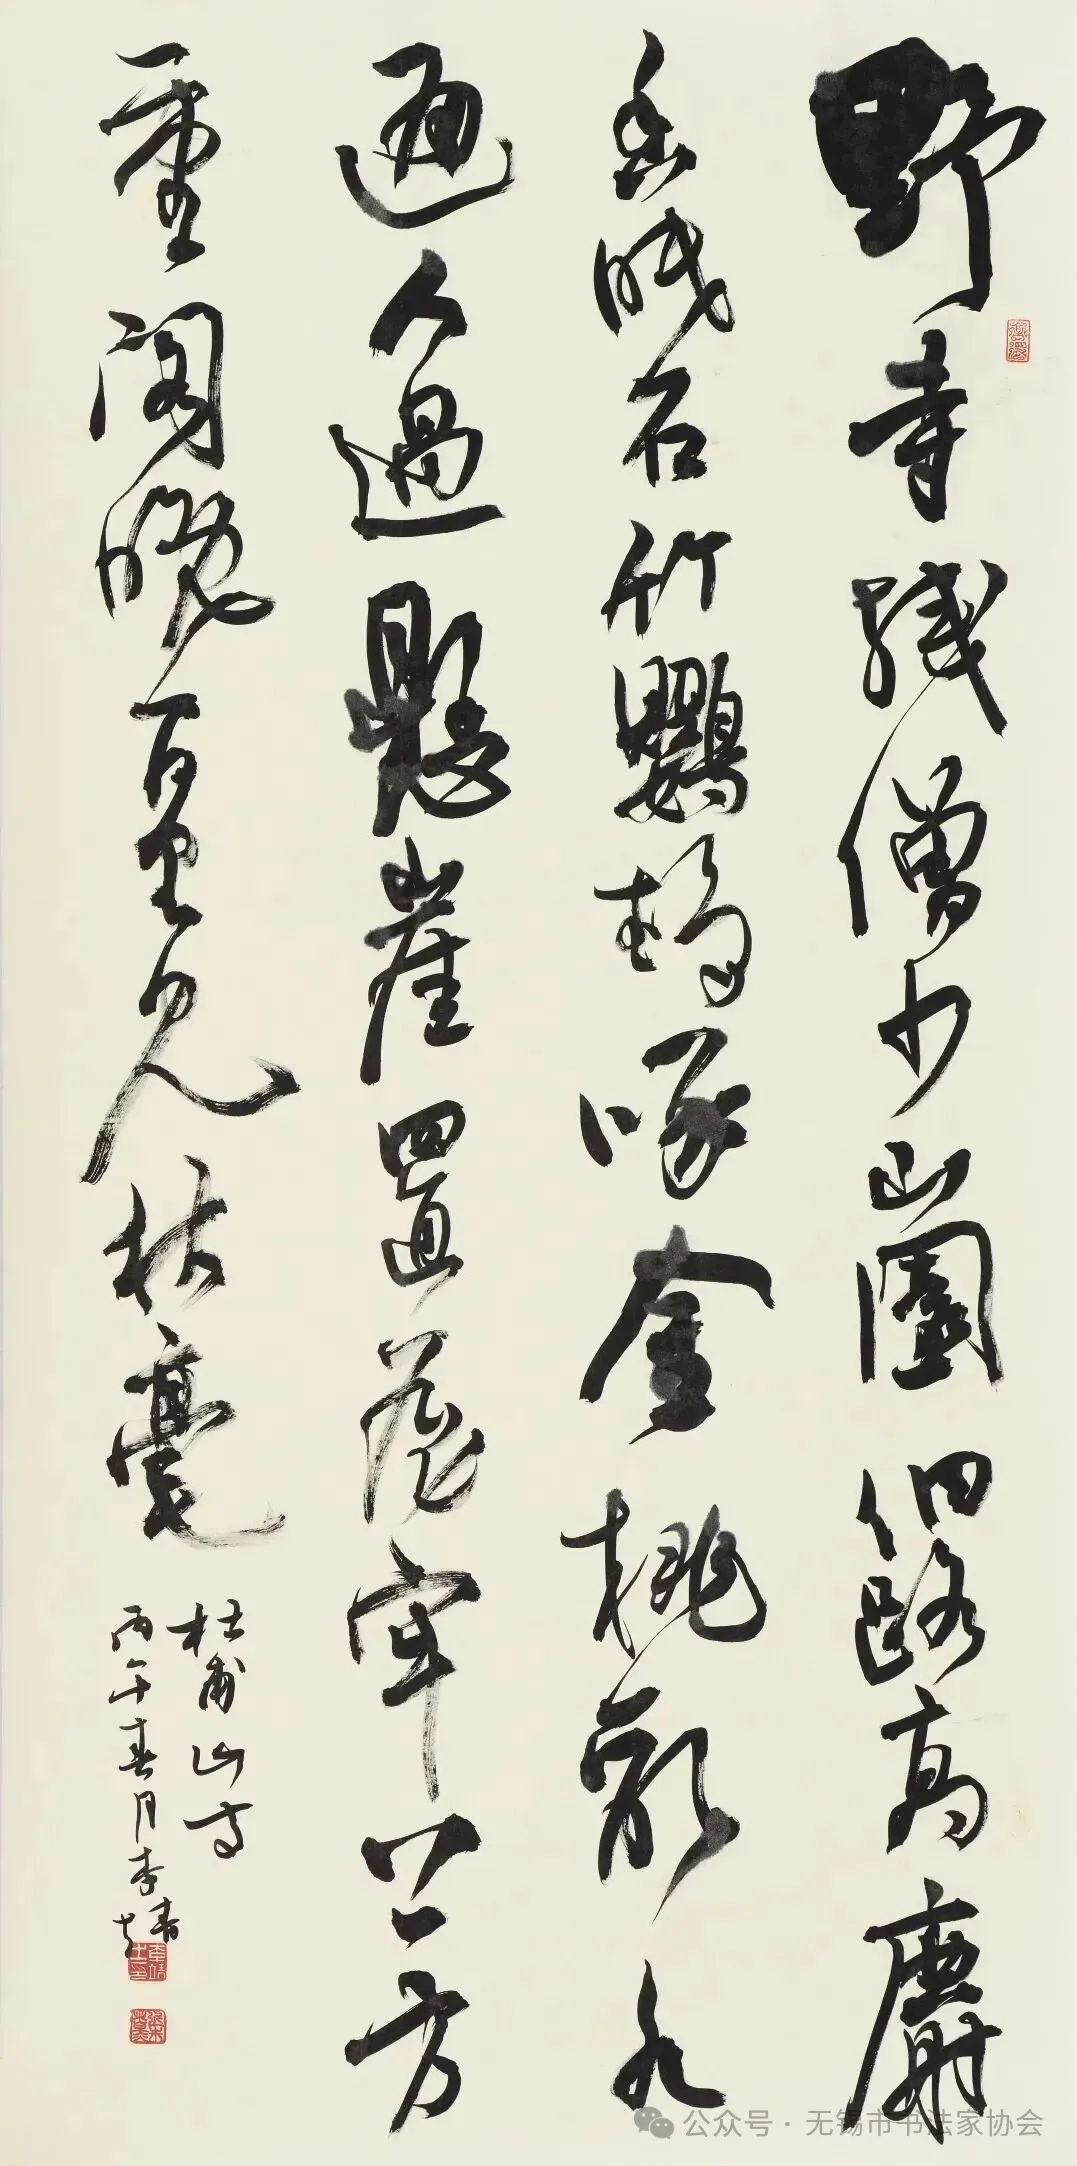 野寺殘僧少山園細路高麝
香眠石竹鸚鵡啄金桃亂水
通人過懸崖置屋牢上方
重閣晚百里見秋毫
杜甫山寺
丙午春月李靖
公众号·无锡市书法家协会